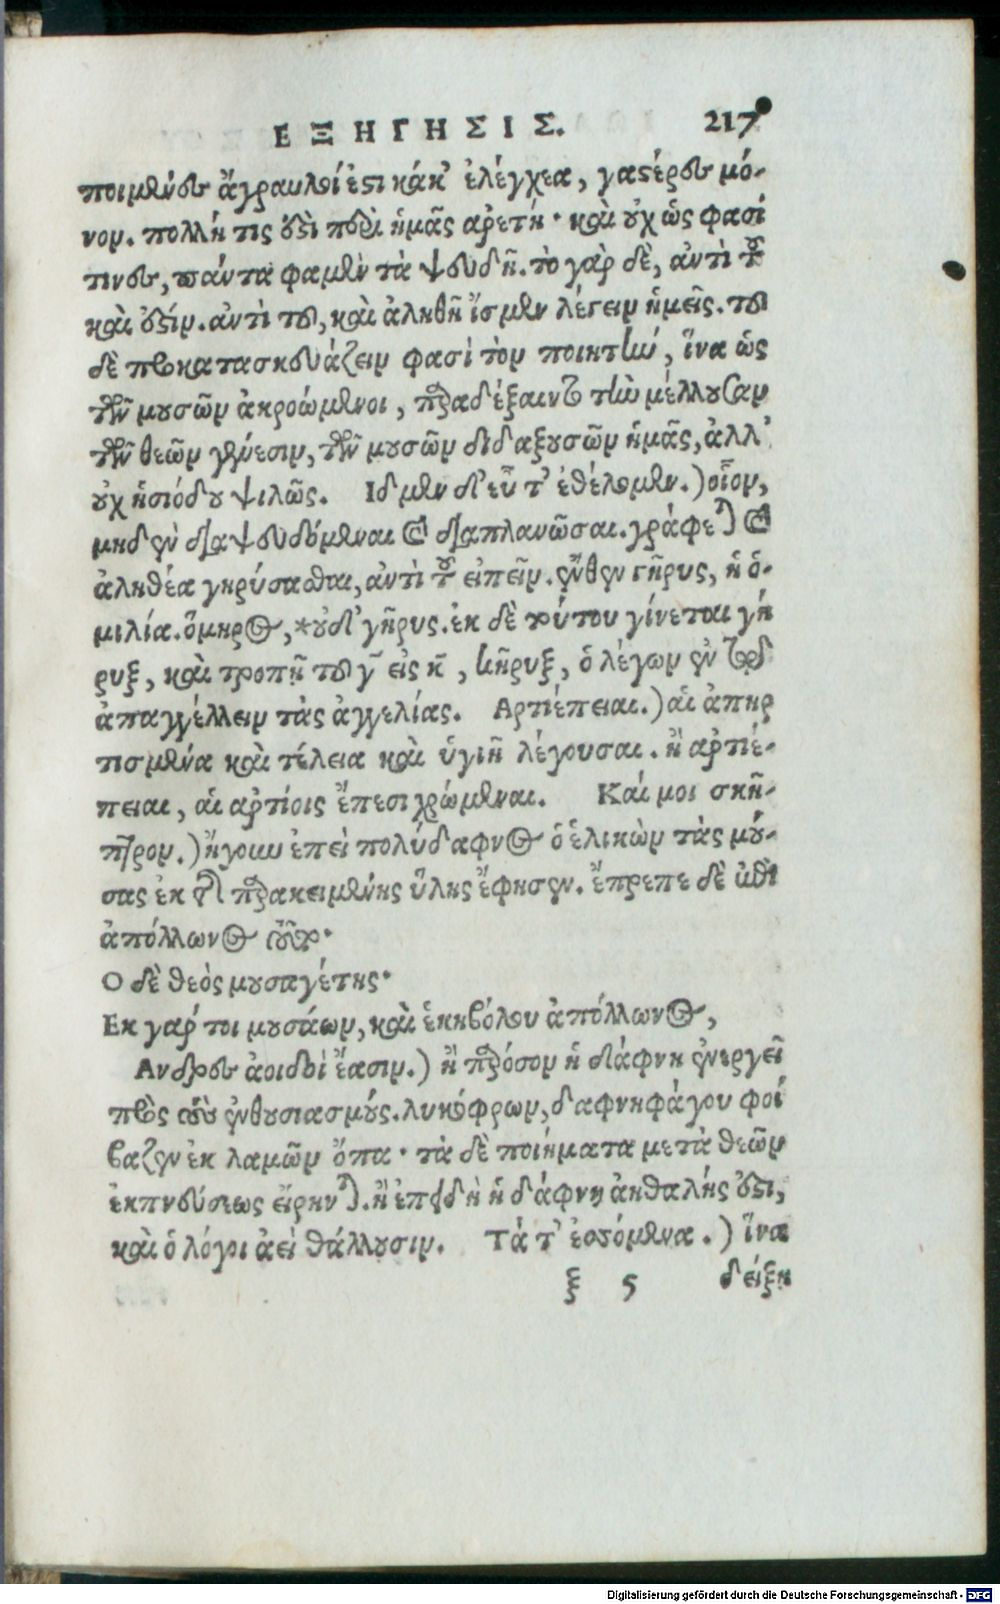 ΕΞΗΓΗΣΙΣ. 217
ποιμένες ἄγραυλοί ἐστι κάκ' ἐλέγχεα, γαστέρες μό-
νον. πολλή τις ἐστὶ περὶ ἡμᾶς ἀρετή· καὶ οὐχ ὥς φασί
τινες, πάντα φαμὲν τὰ ψευδῆ. τὸ γὰρ δὲ, ἀντὶ τοῦ
καὶ ἐστίν. ἀντὶ τοῦ, καὶ ἀληθῆ ἴσμεν λέγειν ἡμεῖς. τοῦ
δὲ προκατασκευάζειν φασὶ τὸν ποιητὴν, ἵνα ὡς
τῶν μουσῶν ἀκροώμενοι, παραδέξαιντο τὴν μέλλουσαν
τῶν θεῶν γένεσιν, τῶν μουσῶν διδαξουσῶν ἡμᾶς, ἀλλ'
οὐχ ἡσιόδου ψιλῶς. Ιδμεν δ' εὖτ' ἐθέλομεν.) οἷον,
μηδὲν διαψευδόμεναι καὶ διαπλανῶσαι. γράφεται καὶ
ἀληθέα γηρύσασθαι, ἀντὶ τοῦ εἰπεῖν. ἔνθεν γῆρυς, ἡ ὁ-
μιλία. ὅμηρος, *οὐδ' γῆρυς. ἐκ δὲ τούτου γίνεται γή
ρυξ, καὶ τροπῇ τοῦ γ εἰς κ, κῆρυξ, ὁ λέγων ἐν τῷ
ἀπαγγέλλειν τὰς ἀγγελίας. Αρτιέπειαι.) αἱ ἀπηρ
τισμένα καὶ τέλεια καὶ ὑγιῆ λέγουσαι. ἢ ἀρτιέ-
πειαι, αἱ ἀρτίοις ἔπεσι χρώμεναι. Καί μοι σκῆ-
πτρον.) ἤγουν ἐπεὶ πολύδαφνος ὁ ἑλικὼν τὰς μού-
σας ἐκ τῆς παρακειμένης ὕλης ἔφησεν. ἔπρεπε δὲ
ἀπόλλωνος
Ο δὲ θεὸς μουσαγέτης·
Εκ γάρ τοι μουσάων, καὶ ἑκηβόλου ἀπόλλωνος,
Ανδρες ἀοιδοὶ ἔασιν.) ἢ παρόσον ἡ δάφνη ἐνεργεῖ
πρὸς τοὺς ἐνθουσιασμούς. λυκόφρων, δαφνηφάγου φοί
βαζεν ἐκ λαιμῶν ὄπα· τὰ δὲ ποιήματα μετὰ θεῶν
ἐκπνεύσεως εἴρηνται. ἢ ἐπειδὴ ἡ δάφνη ἀηθαλής ἐστι,
καὶ ὁ λόγοι ἀεὶ θάλλουσιν. Τά τ' ἐσσόμενα.) ἵνα
ξ 5 δείξη
Digitalisierung gefördert durch die Deutsche Forschungsgemeinschaft - DFG